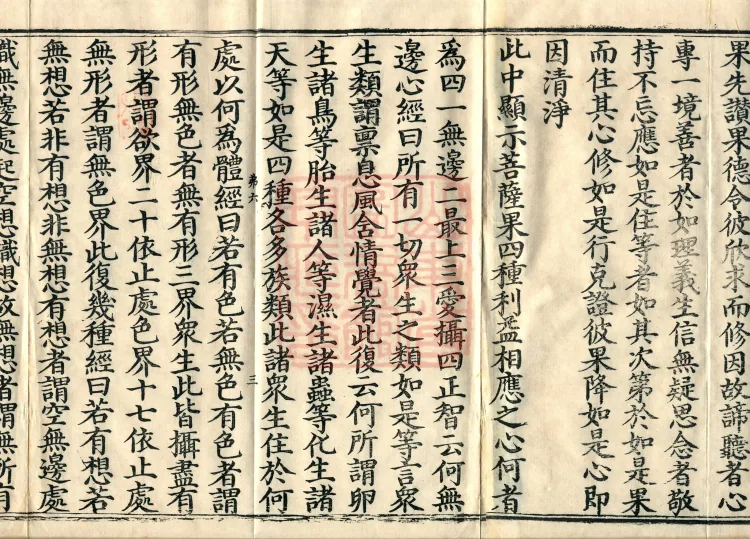 果先讃果德令彼欣求而修因故諦聽者心
專一境善者於如理義生信無疑思念者敬
持不忘應如是住等者如其次第於如是果
而住其心修如是行克證彼果降如是心即
因清淨
此中顯示菩薩果四種利益相應之心何者
爲四一無邊二最上三愛攝四正智云何無
邊心經曰所有一切衆生之類如是等言衆
生類謂禀息風舍情覺者此復云何所謂卵
生諸鳥等胎生諸人等濕生諸蟲等化生諸
天等如是四種各多族類此諸衆生住於何
弟六 三
處以何爲體經曰若有色若無色有色者謂
有形無色者無有形三界衆生此皆攝盡有
形者謂欲界二十依止處色界十七依止處
無形者謂無色界此復幾種經曰若有想若
無想若非有想非無想有想者謂空無邊處
識無邊處起空想識想故無想者謂無所有